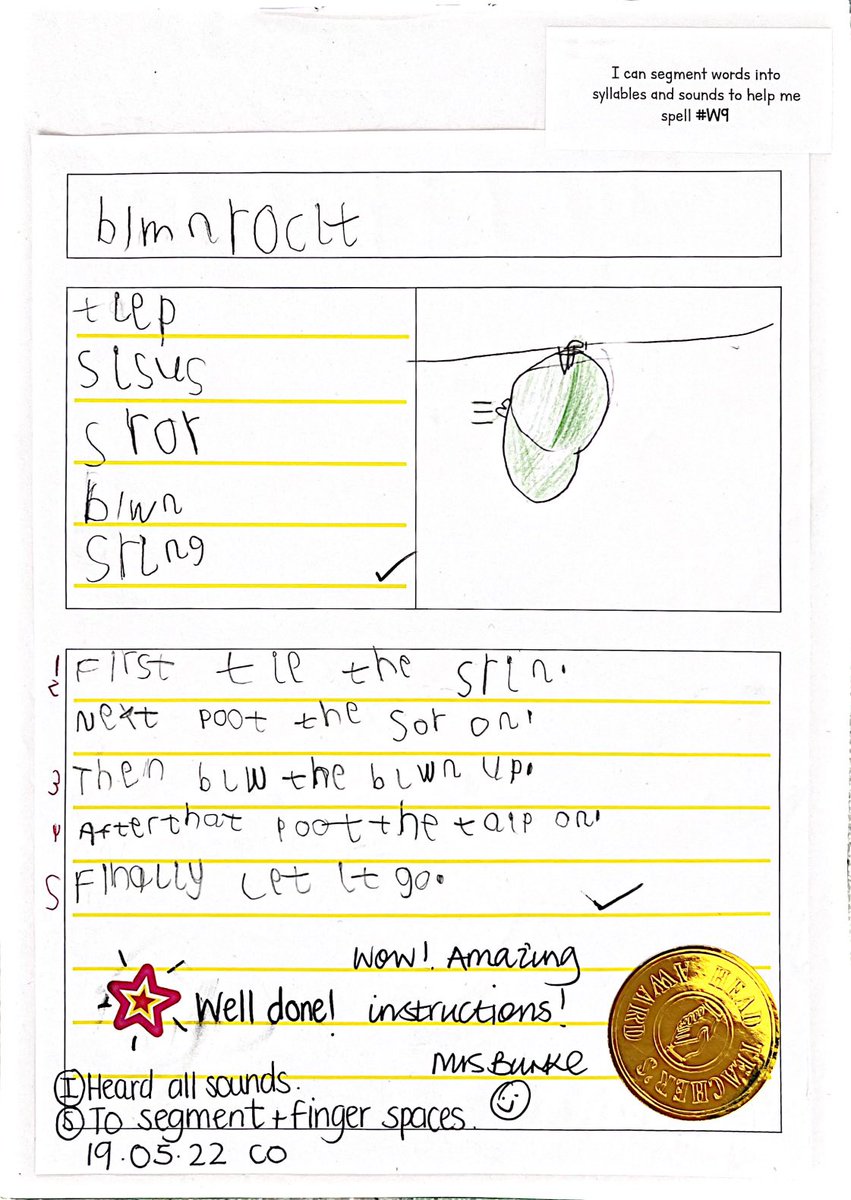 I can segment words into
syllables and sounds to help me
spell #W9
blmnrocit
tiep
sisus
sror
blwn
sring
1 First tie the srin.
2 Next poot the sor on.
3 Then blw the blwn up.
4 After that poot the taip on.
5 Finally Let it go.
Wow! Amazing
Well done! instructions!
Mrs Burke
HEAD TEACHER'S AWARD
I Heard all sounds.
S To segment + finger spaces.
19.05.22 CO